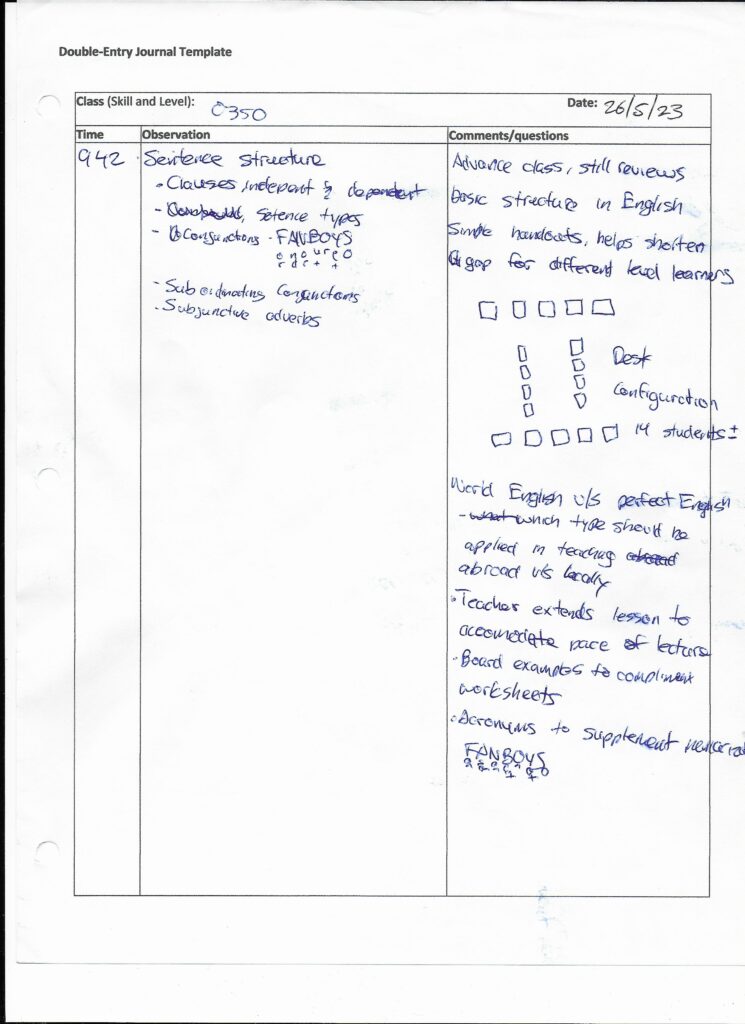 Double-Entry Journal Template
Class (Skill and Level): C350
Date: 26/5/23
Time
Observation
Comments/questions
942
Sentence structure
• Clauses, indepant & dependent
- Setence types
- Conjunctions - FANBOYS
o n o u r e o
r d r t t
- Subordinating Conjunctions
- Subjunctive adverbs
Advance class, still reviews
basic structure in English
Simple handouts, helps shorten
gap for different level learners
Desk
Configuration
14 students ±
World English v/s perfect English
- which type should be
applied in teaching
abroad v/s locally
• Teacher extends lesson to
accomodate pace of lecture
• Board examples to compliment
worksheets
• Acronyms to supplement
FANBOYS